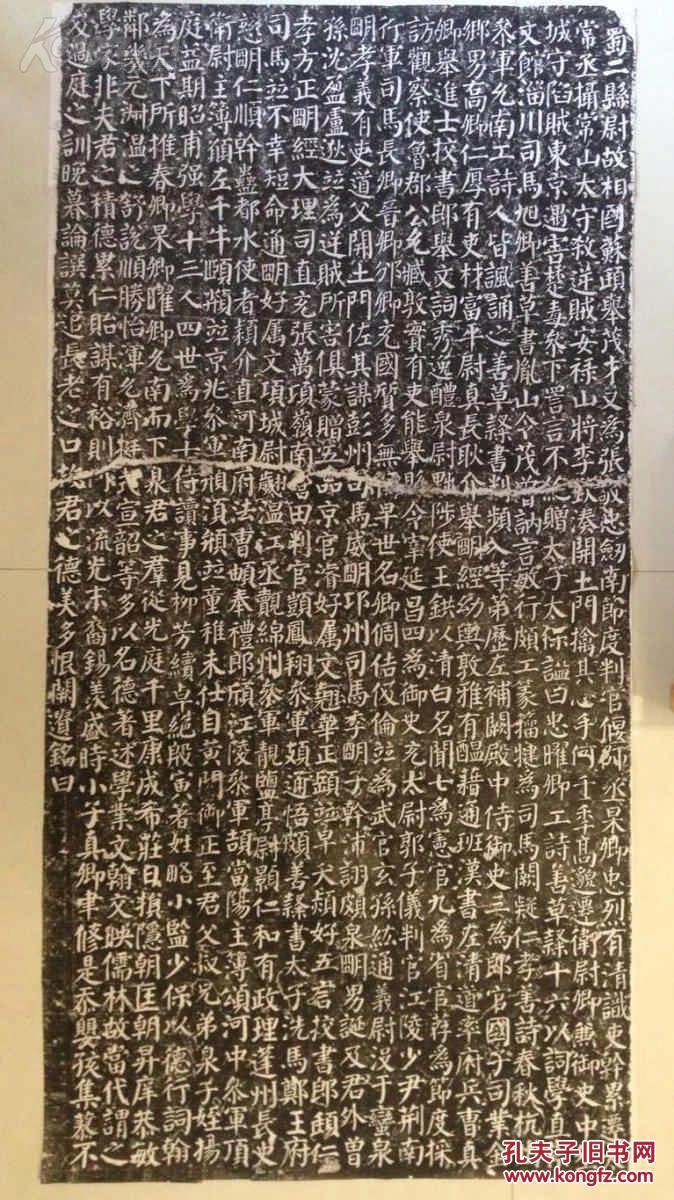 蜀二縣尉故相國蘇頲舉茂才又為張敬忠劒南節度判官偃師丞杲卿忠烈有清識吏幹累遷太
常丞攝常山太守殺逆賊安祿山將李欽湊開土門擒其心手何千年髙邈遷衛尉卿兼御史中丞
城守陷賊東京遇害楚毒參下詈言不絕贈太子太保謚曰忠曜卿工詩善草隸十六以詞學直崇
文館淄川司馬旭卿善草書胤山令茂曾訥言敏行頗工篆籀犍為司馬闕疑仁孝善詩春秋杭州
參軍允南工詩人皆諷誦之善草隸書判頻入等第歷左補闕殿中侍御史三為郎官國子司業金
鄉男喬卿仁厚有吏材富平尉真長耿介舉明經幼輿敦雅有醖藉通班漢書左清道率府兵曹真
卿舉進士挍書郎舉文詞秀逸醴泉尉黜陟使王鉷以清白名聞七為憲官九為省官荐為節度採
訪觀察使魯郡公允臧敦實有吏能舉縣令宰延昌四為御史充太尉郭子儀判官江陵少尹荆南
行軍司馬長卿晉卿邠卿充國質多無祿早世名卿倜佶伋倫並為武官玄孫紘通義尉没于蠻泉
明孝義有吏道父開土門佐其謀彭州司馬威明邛州司馬季明子幹沛詡頗泉明男誕及君外曾
孫沈盈盧逖並為逆賊所害俱蒙贈五品京官濬好属文翹華正頣並早夭熲好五言挍書郎頲仁
孝方正明經大理司直充張萬頃嶺南營田判官顗鳳翔參軍頍通悟頗善隸書太子洗馬鄭王府
司馬並不幸短命通明好属文項城尉翽溫江丞覿綿州參軍靚鹽亭尉顥仁和有政理蓬州長史
慈明仁順幹蠱都水使者潁介直河南府法曹頔奉禮郎頎江陵參軍頡當陽主簿頌河中參軍頂
衛尉主簿願左千牛頤頖並京兆參軍頏湏䫀並童稚未仕自黃門御正至君父叔兄弟息子姪揚
庭益期昭甫强學十三人四世為學士侍讀事見柳芳續卓絕殷寅著姓略小監少保以德行詞翰
為天下所推春卿杲卿曜卿允南而下洎君之羣從光庭千里康成希莊日損隱朝匡朝昇庠恭敏
鄰幾元淑溫之舒說順勝怡渾允濟挺式宣韶等多以名德著述學業文翰交映儒林故當代謂之
學家非夫君之積德累仁貽謀有裕則何以流光末裔錫羡盛時小子真卿聿修是忝嬰孩集蓼不
及過庭之訓晚暮論譔莫追長老之口故君之德美多恨闕遺銘曰
孔夫子旧书网
www.kongfz.com